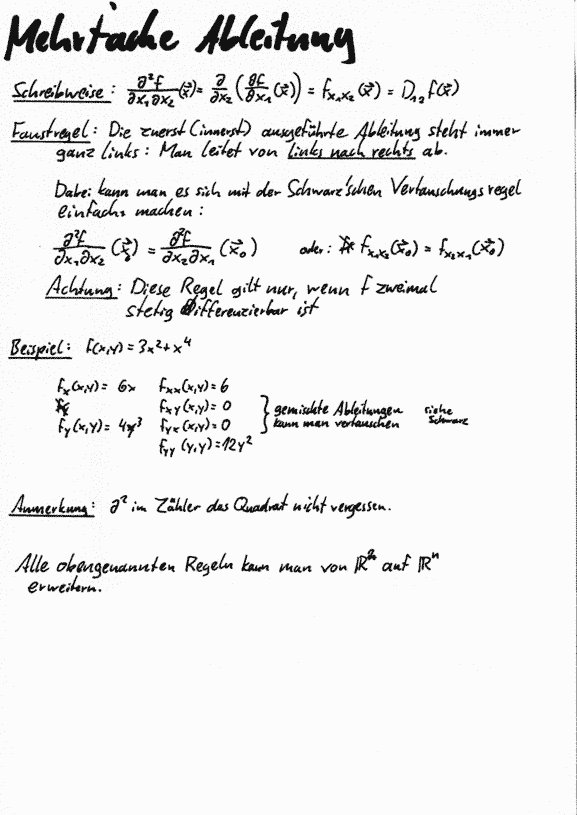 Mehrfache Ableitung
Schreibweise: ∂²f/∂x₁∂x₂ (x⃗) = ∂/∂x₂ (∂f/∂x₁ (x⃗)) = fₓ₁ₓ₂(x⃗) = D₁₂ f(x⃗)
Faustregel: Die zuerst (innerst) ausgeführte Ableitung steht immer
ganz links: Man leitet von links nach rechts ab.
Dabei kann man es sich mit der Schwarz'schen Vertauschungsregel
einfach machen:
∂²f/∂x₁∂x₂ (x⃗₀) = ∂²f/∂x₂∂x₁ (x⃗₀) oder: fₓ₁ₓ₂(x⃗₀) = fₓ₂ₓ₁(x⃗₀)
Achtung: Diese Regel gilt nur, wenn f zweimal
stetig differenzierbar ist
Beispiel: f(x,y) = 3x² + x⁴
fx(x,y) = 6x fxx(x,y) = 6
fxy(x,y) = 0 } gemischte Ableitungen siehe
fy(x,y) = 4y³ fyx(x,y) = 0 kann man vertauschen Schwarz
fyy(y,y) = 12y²
Anmerkung: ∂² im Zähler das Quadrat nicht vergessen.
Alle obengenannten Regeln kann man von ℝ² auf ℝⁿ
erweitern.